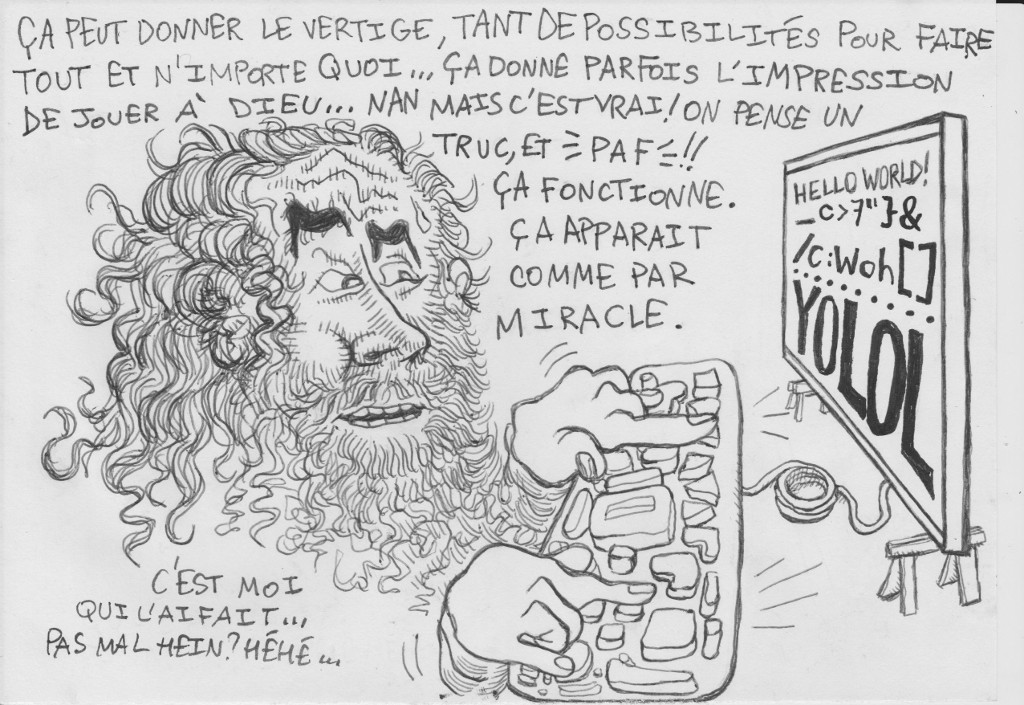 ÇA PEUT DONNER LE VERTIGE, TANT DE POSSIBILITÉS POUR FAIRE
TOUT ET N'IMPORTE QUOI... ÇA DONNE PARFOIS L'IMPRESSION
DE JOUER À DIEU... NAN MAIS C'EST VRAI! ON PENSE UN
TRUC, ET PAF!!
ÇA FONCTIONNE.
ÇA APPARAIT
COMME PAR
MIRACLE.
HELLO WORLD!
_C>7"}&
/C:Woh[]
YOLOL
C'EST MOI
QUI L'AI FAIT...
PAS MAL HEIN? HÉHÉ...